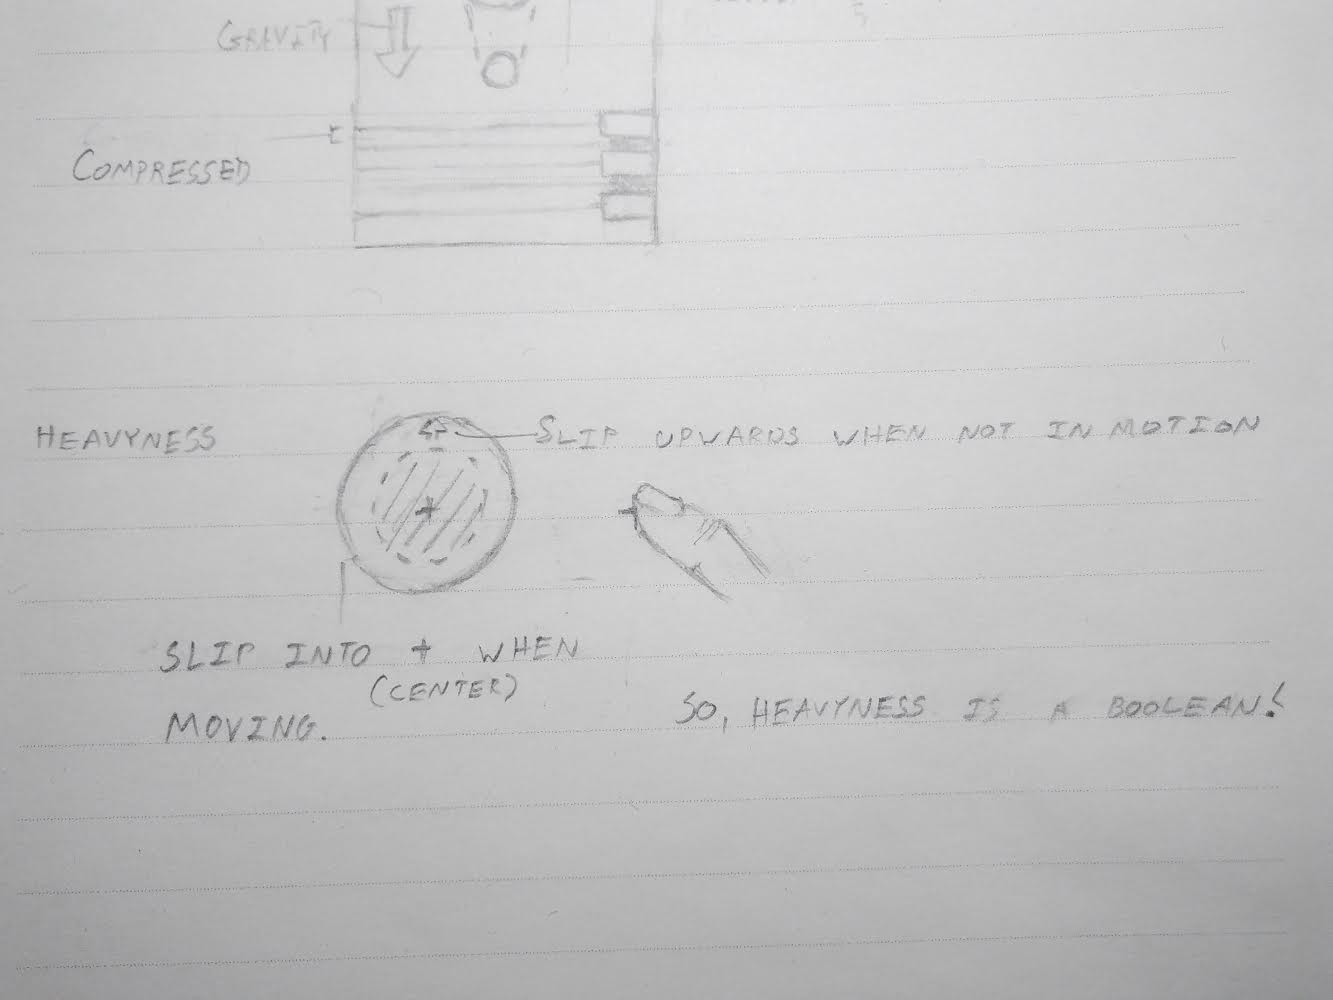 GRAVITY
COMPRESSED
HEAVYNESS
SLIP UPWARDS WHEN NOT IN MOTION
SLIP INTO + WHEN
(CENTER)
MOVING.
SO, HEAVYNESS IS A BOOLEAN!